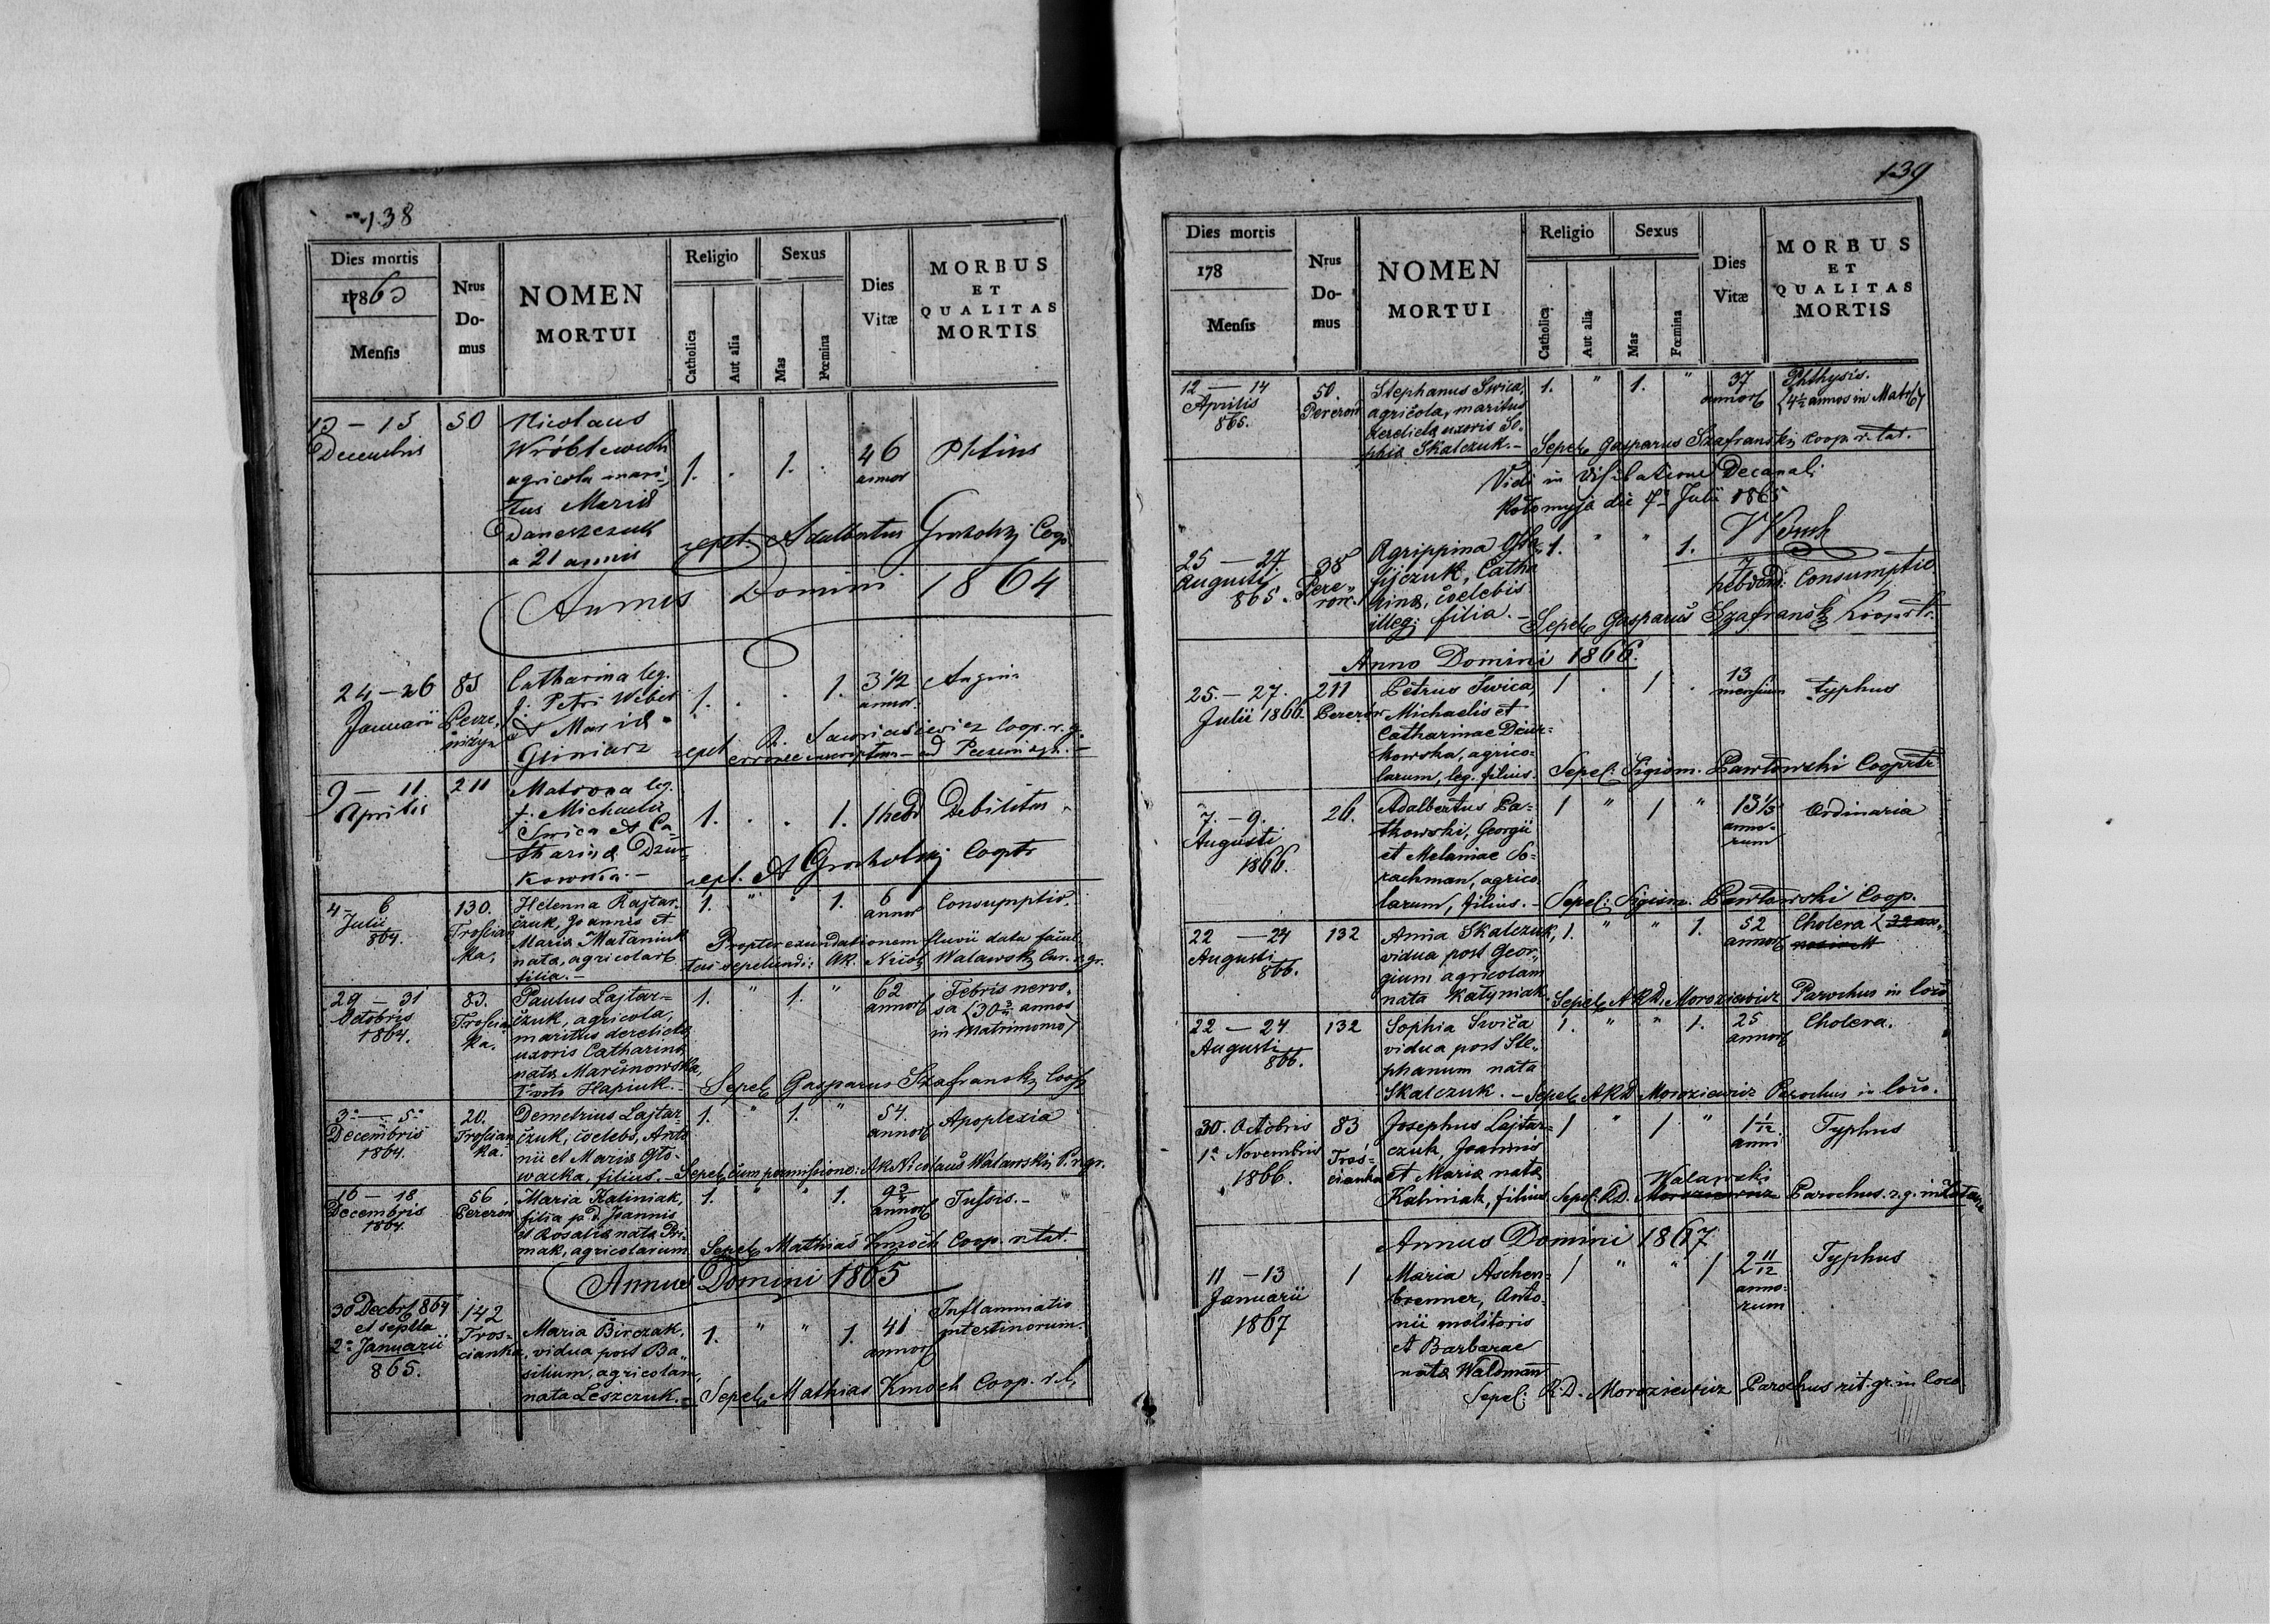 138
Dies mortis
1863
Mensis
Nrus Do-mus
NOMEN
MORTUI
Religio
Catholica
Aut alia
Sexus
Mas
Fœmina
Dies
Vitæ
MORBUS
ET
QUALITAS
MORTIS
13 – 15
Decembris
50
Nicolaus
agricola mari-
tus Mariæ
a 21 annis
1.
1.
46
annor
sepel. Adalbertus
Annus Domini 1864
24 – 26
Januarii
85
Catharina leg.
f. Petri Weber
et Mariæ
1.
1.
3 1/2
annor.
Angina
sepel.
Coop. r. g.
9 – 11
Aprilis
211
Matrona leg.
f. Michaelis
Swica et Ca-
tharinæ Dzur-
kowska. –
1.
1.
1 hebd
Debilitas
sepel. A
4 – 6
Julii
864.
130.
Troscian
ka,
Helenna Rajtar-
czuk, Joannis et
Mariæ Mataniuk
nata, agricolarŧ
filia. –
1. " "
1.
6
annor
Consumptio.
Propter exundationem fluvii data facul-
tas sepeliendi: AR. Nicol Walawski Cur. r gr.
29 – 31
Octobris
1864.
83.
Troscia
ka.
Paulus Lajtar-
czuk, agricola,
maritus derelictæ
uxoris Catharinæ
natæ Marünowska,
Hapiuk. –
1. " 1. "
62
annor
Febris nervo-
sa (30 3/4 annos
in Matrimonio)
Sepel Gasparus Szafransky Coop
3 – 5
Decembris
1864.
20.
Troscian
ka.
Demetrius Lajtar-
czuk, coelebs, Anto
nii et Mariæ Gło-
wacka, filius. –
1. " 1. "
54.
annor
Apoplexia
Sepel cum permissione: AR Nicolaus Walawski P. r gr.
16 – 18
Decembris
1864.
56
Pererow
Maria Kaliniak,
filia pd Joannis
et Rosaliæ nata Pri-
mak, agricolarum
1. " "
1.
9 3/4
annor
Tussis. –
Sepel Mathias Kmoch Coop. r. lat.
Annus Domini 1865
30 Decbr 864
et septa
2 Januarii
865.
142
Tros-
cianka
Maria Birczak,
vidua post Ba-
silium, agricolam,
nata Leszczuk. –
1. " "
1.
41
annor
Inflammatio
intestinorum.
Sepel Mathias Kmoch Coop. r. l.
139
Dies mortis
178
Mensis
Nrus
Do-
mus
NOMEN
MORTUI
Religio
Catholica
Aut alia
Sexus
Mas
Fœmina
Dies
Vitæ
MORBUS
ET
QUALITAS
MORTIS
12 – 14
Aprilis
865.
50.
Pererow
Stephanus Swica,
agricola, maritus
derelictæ uxoris So-
phiæ Skalczuk. –
1. " 1. "
37
annor
Phthysis.
(4 1/2 annos in Matr)
Sepel Gasparus Szafranski coop. r. lat.
Vidi in Visitatione Decanali
Kołomyja die 7 Julii 1865
25 – 27.
Augusti
865.
38
Pere-
row.
Agrippina
Catha
rinæ, coelebis
illeg: filia. –
1. " "
1.
7
hebdom:
Consumptio
Sepel Gasparus Szafransky
Anno Domini 1866.
25. – 27.
Julii 1866.
211
Pererow
Petrus Swica,
Michaelis et
Catharinae Dzur-
kowska, agrico-
larum, leg. filius.
1 . 1 .
13
mensium
typhus
Sepel: Sigism. Pawłowski Cooprtr
7. – 9.
Augusti
1866.
26.
Adalbertus Pa-
tkowski, Georgii
et Melaniae So-
rachman, agrico-
larum, filius. –
1 " 1 "
13 1/3
anno-
rum
Ordinaria
Sepel: Sigism. Pawłowski Coop.
22 – 24
Augusti
866.
132
Anna Skalczuk,
vidua post Geor-
gium agricolam
nata Katyniak.
1. " "
1.
52
annor
Cholera
Sepel ARD. Moroziewicz Parochus in loco
22 – 24
Augusti
866.
132
Sophia Swica
vidua post Ste-
phanum nata
Skalczuk. –
1. " "
1.
25
annor
Cholera.
Sepel ARD Moroziewicz Parochus in loco.
30. Octobris
1 Novembris
1866.
83
Tros-
cianka
Josephus Lajtar-
czuk, Joannis
et Mariæ natæ
Kaliniak, filius
1 " 1 "
1 1/12
anni
Typhus
Walawski
Sepel: RD. Moroziewicz Parochus. r. g. in
Annus Domini 1867
11 – 13
Januarii
1867
1
Maria Aschen-
brenner, Anto-
nii molitoris
et Barbarae
natæ Waldman
1 " " 1
2 11/12
anno-
rum
Typhus
Sepel: R.D. Moroziewicz Parochus rit. gr. in loco